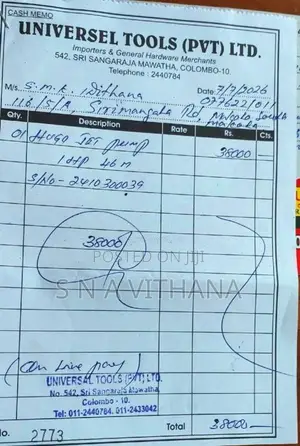 CASH MEMO
UNIVERSEL TOOLS (PVT) LTD.
Importers & General Hardware Merchants
542, SRI SANGARAJA MAWATHA, COLOMBO-10.
Telephone : 2440784
M/s. S.M.K. Vithana Date 7/7/2026
116/5/A, Sirimangala Rd, 0776221011
South
Qty. Description Rate Rs. Cts.
01 HUGO JET pump 38000
1HP 46m
S/No - 2410300039
38000
POSTED ON JIJI
S N A VITHANA
(On Line pay)
UNIVERSEL TOOLS (PVT) LTD.
No. 542, Sri Sangaraja Mawatha,
Colombo - 10.
Tel: 011-2440784, 011-2433042
No. 2773 Total 38000